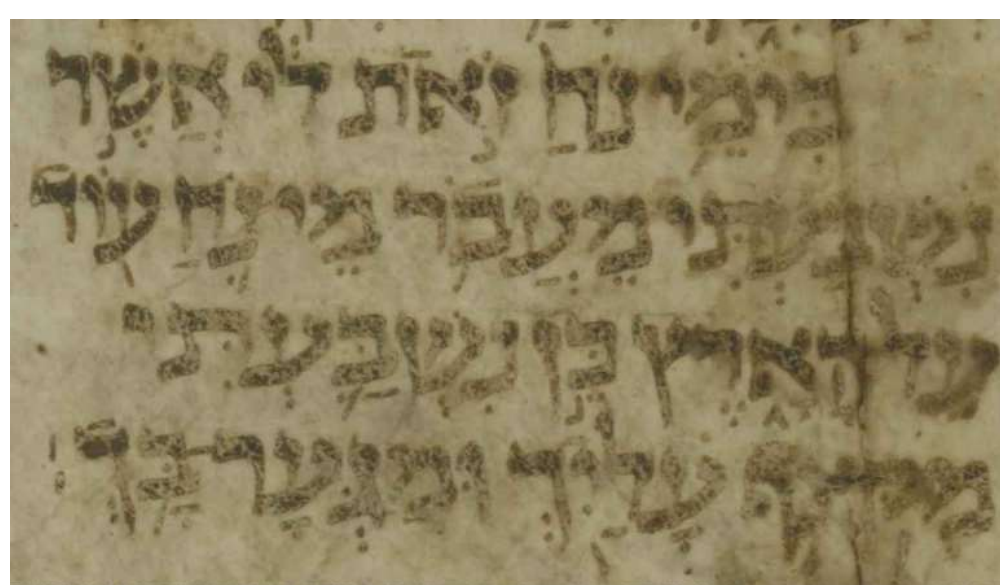 כִּימֵי נֹחַ זֹאת לִי אֲשֶׁר
נִשְׁבַּעְתִּי מֵעֲבֹר מֵי נֹחַ עוֹד
עַל הָאָרֶץ כֵּן נִשְׁבַּעְתִּי
מִקְּצֹף עָלַיִךְ וּמִגְּעָר בָּךְ׃